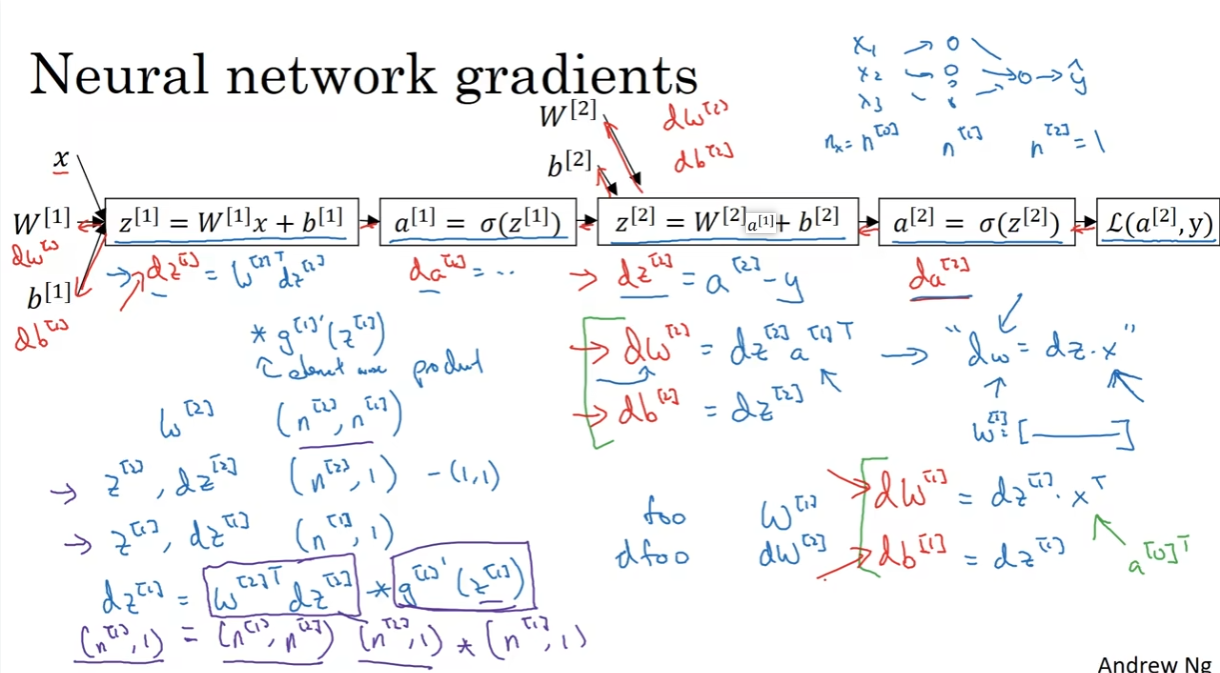 Neural network gradients
x₁ → 0
x₂
x₃
→ 0 → ŷ
nₓ = n^[0] n^[1] n^[2] = 1
W^[2] dW^[2]
b^[2] db^[2]
x
W^[1]
dW^[1]
b^[1]
db^[1]
z^[1] = W^[1]x + b^[1]
a^[1] = σ(z^[1])
z^[2] = W^[2]a^[1] + b^[2]
a^[2] = σ(z^[2])
ℒ(a^[2], y)
→ dz^[1] = W^[2]T dz^[2]
* g^[1]'(z^[1])
↑ element wise product
da^[1] = ··
→ dz^[2] = a^[2] − y
da^[2]
→ dW^[2] = dz^[2] a^[1]T
→ "dw = dz · x"
→ db^[2] = dz^[2]
W^[2] (n^[2], n^[1])
→ z^[2], dz^[2] (n^[2], 1) − (1,1)
→ z^[1], dz^[1] (n^[1], 1)
dz^[1] = W^[2]T dz^[2] * g^[1]'(z^[1])
(n^[1], 1) = (n^[1], n^[2]) (n^[2], 1) * (n^[1], 1)
foo W^[1]
dfoo dW^[2]
dW^[1] = dz^[1] · x^T
db^[1] = dz^[1]
a^[0]T
Andrew Ng